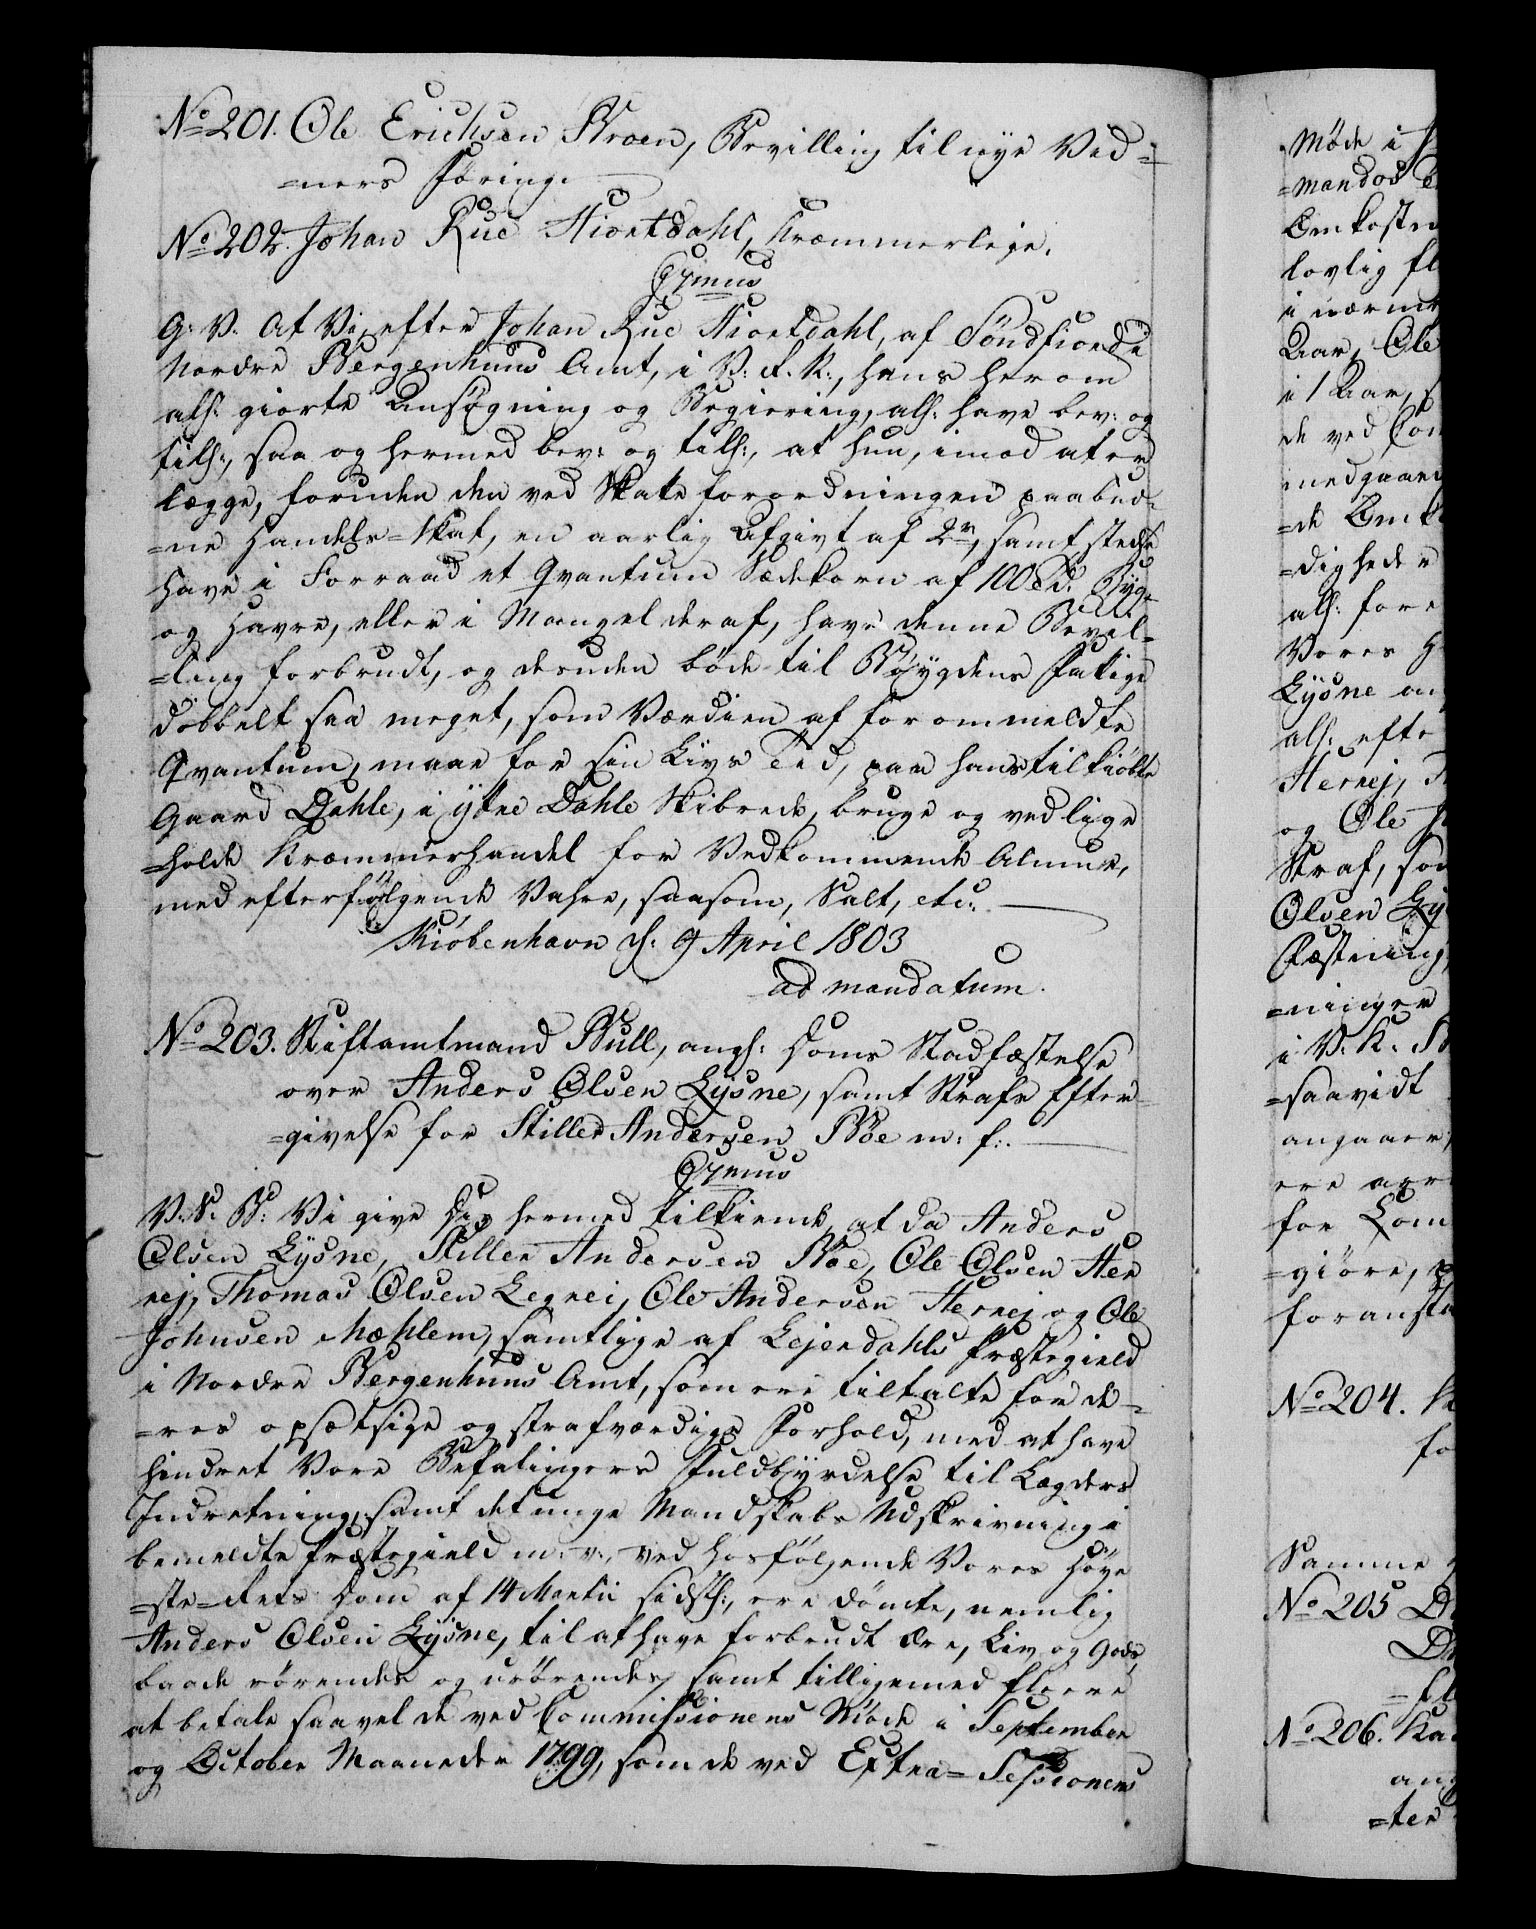 No 201. Ole Erichsen Kroen, Bevilling til nye Vid=
=ners Føring.
No 202. Johan Rue Hiortdahl, Kræmmerleje.
C7mus
G: V. At Vi, efter Johan Rue Hiortdahl, af Söndfiord i
Nordre Bergenhuus Amt, i V: R. N:, hans herom
alh: giorte Ansøgning og Begiering, alh: have bev: og
tilh:, saa og hermed bev: og tilh:, at hun, imod at er
lægge, foruden den ved Skatteforordningen paabud=
=ne Handels-Skat, en aarlig Afgivt af 2 rd, samt stedse
have i Forraad et Qvantum Sædekorn af 100 Td. Byg=
og Havre, eller i Mangel deraf, have denne Bevil=
=ling forbrudt, og desuden bøde til Bøygdens Fattige
dobbelt saa meget, som Værdien af forommeldte
Qvantum, maae for sin Livs Tid, paa hans tilkiøbte
Gaard Dahle, i ytre Dahle Skibrede, bruge og vedlige
=holde Kræmmerhandel for Vedkommende Almue,
med efterfølgende Vahre, saasom, Salt, etc:
Kiøbenhavn d: 9 April 1803
ad mandatum.
No 203. Stiftamtmand Bull, angl: Doms Stadfæstelse
over Anders Olsen Lysne, samt Straffe Efter=
=givelse for Stiller Andersen Böe m: f:.
C7mus
V. S. B: Vi give Dig hermed tilkiende, at da Anders
Olsen Lysne, Stiller Andersen Böe, Ole Olsen Her
nej, Thomas Olsen Legrei, Ole Andersen Hernej og Ole
Johnsen Mæhlem, samtlige af Lejerdahls Præstegield
i Nordre Bergenhuus Amt, som ere tiltalte for de=
=res opsætsige og strafværdige Forhold, med at have
hindret Vore Befalingers Fuldbyrdelse til Lægders
Indretning, samt det unge Mandskabs Udskrivning i
bemeldte Præstegield m. v., ved hosfølgende Vores Høye
=ste-Rets Dom af 14 Martii sidstl:, ere dömte, nemlig
Anders Olsen Lysne, til at have forbrudt Ære, Liv og Gods,
baade rørendes og urørendes, samt tilligemed fleere
at betale saavel de ved Commissionens Møde i September
og October Maaneder 1799, som de ved Extra=Sessionens
Møde i
=mandos
Omkosten
lovlig
i nærme
Aar, Ole
i 1 Aar,
de ved
medgaaen
=de
=dighede
alh: fore
Vores
Lysne
alh: efte
Hernej,
og Ole
Straf, som
Olsen Ly
Fæstning,
=ninger
i V. K.
=saavidt
angaaer
ere
for Lom
=giøre,
foransta
No 204.
fo
Samme
No 205
No 206.
ang
=ter